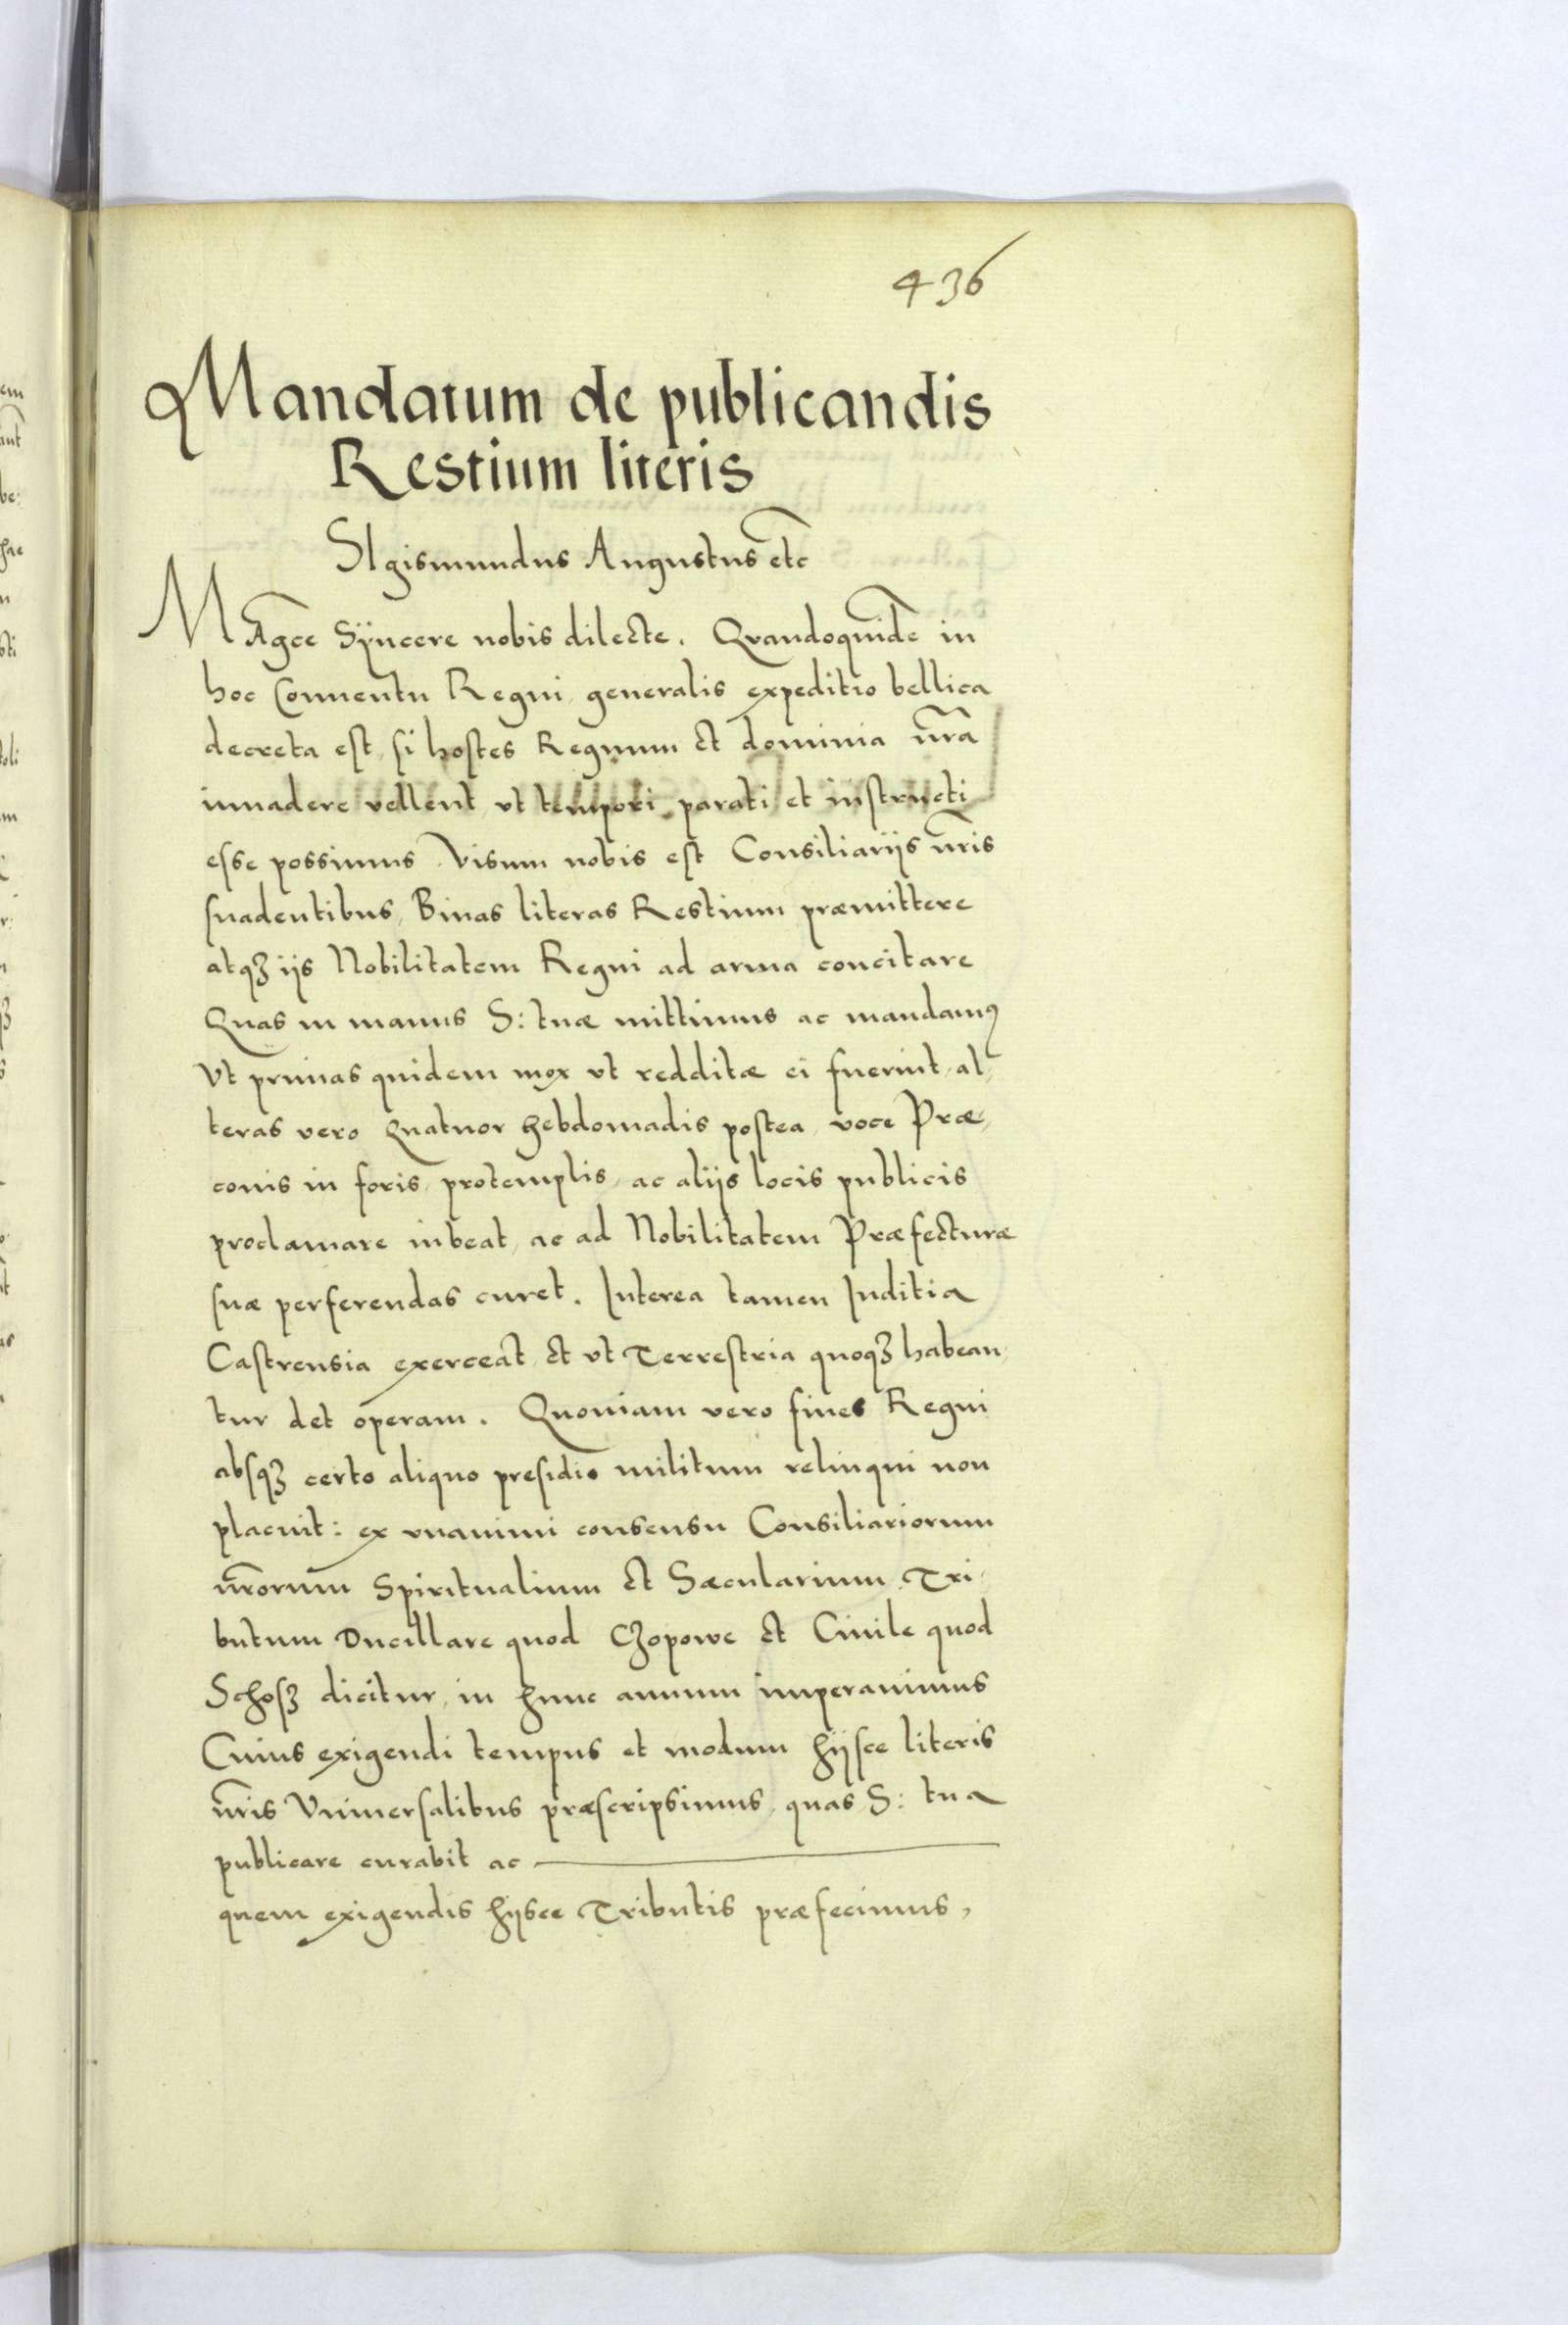 436
Mandatum de publicandis
Restium literis
SIgismundus Augustus etc
MAgce Sÿncere nobis dilecte. Quandoquide in
hoc Conuentu Regni, generalis expeditio bellica
decreta est, si hostes Regnum et dominia nra
inuadere vellent, vt tempori parati et instructi
esse possimus. Visum nobis est Consiliariis nris
suadentibus, Binas literas Restium præmittere
atqꝫ iis Nobilitatem Regni ad arma concitare
Quas in manus S: tuæ mittimus ac mandamꝰ
Vt primas quidem mox vt redditæ ei fuerint, al,
teras vero Quatuor hebdomadis postea, voce Præ,
conis in foris, protemplis, ac aliis locis publicis
proclamare iubeat, ac ad Nobilitatem Præfecturæ
suæ perferendas curet. Interea tamen Iuditia
Castrensia exerceat, et vt Terrestria quoqꝫ habean,
tur det operam. Quoniam vero fines Regni
absqꝫ certo aliquo presidio militum relinqui non
placuit: ex vnanimi consensu Consiliariorum
nrorum Spiritualium et Sæcularium, Tri,
butum Ducillare quod Czopowe et Ciuile quod
Schosz dicitur, in hunc annum imperauimus
Cuius exigendi tempus et modum hiisce literis
nris Vniuersalibus præscripsimus, quas S: tua
publicare curabit ac
quem exigendis hiisce Tributis præfecimus,